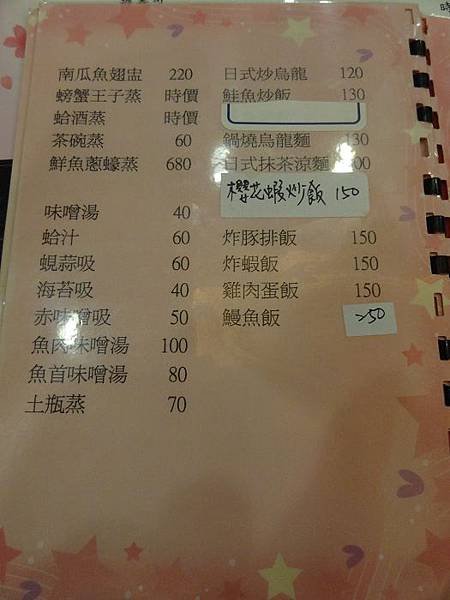 南瓜魚翅盅 220
螃蟹王子蒸 時價
蛤酒蒸 時價
茶碗蒸 60
鮮魚蔥蠔蒸 680
味噌湯 40
蛤汁 60
蜆蒜吸 60
海苔吸 40
赤味噌吸 50
魚肉味噌湯 100
魚首味噌湯 80
土瓶蒸 70
日式炒烏龍 120
鮭魚炒飯 130
鍋燒烏龍麵 130
日式抹茶涼麵
櫻花蝦炒飯 150
炸豚排飯 150
炸蝦飯 150
雞肉蛋飯 150
鰻魚飯 250